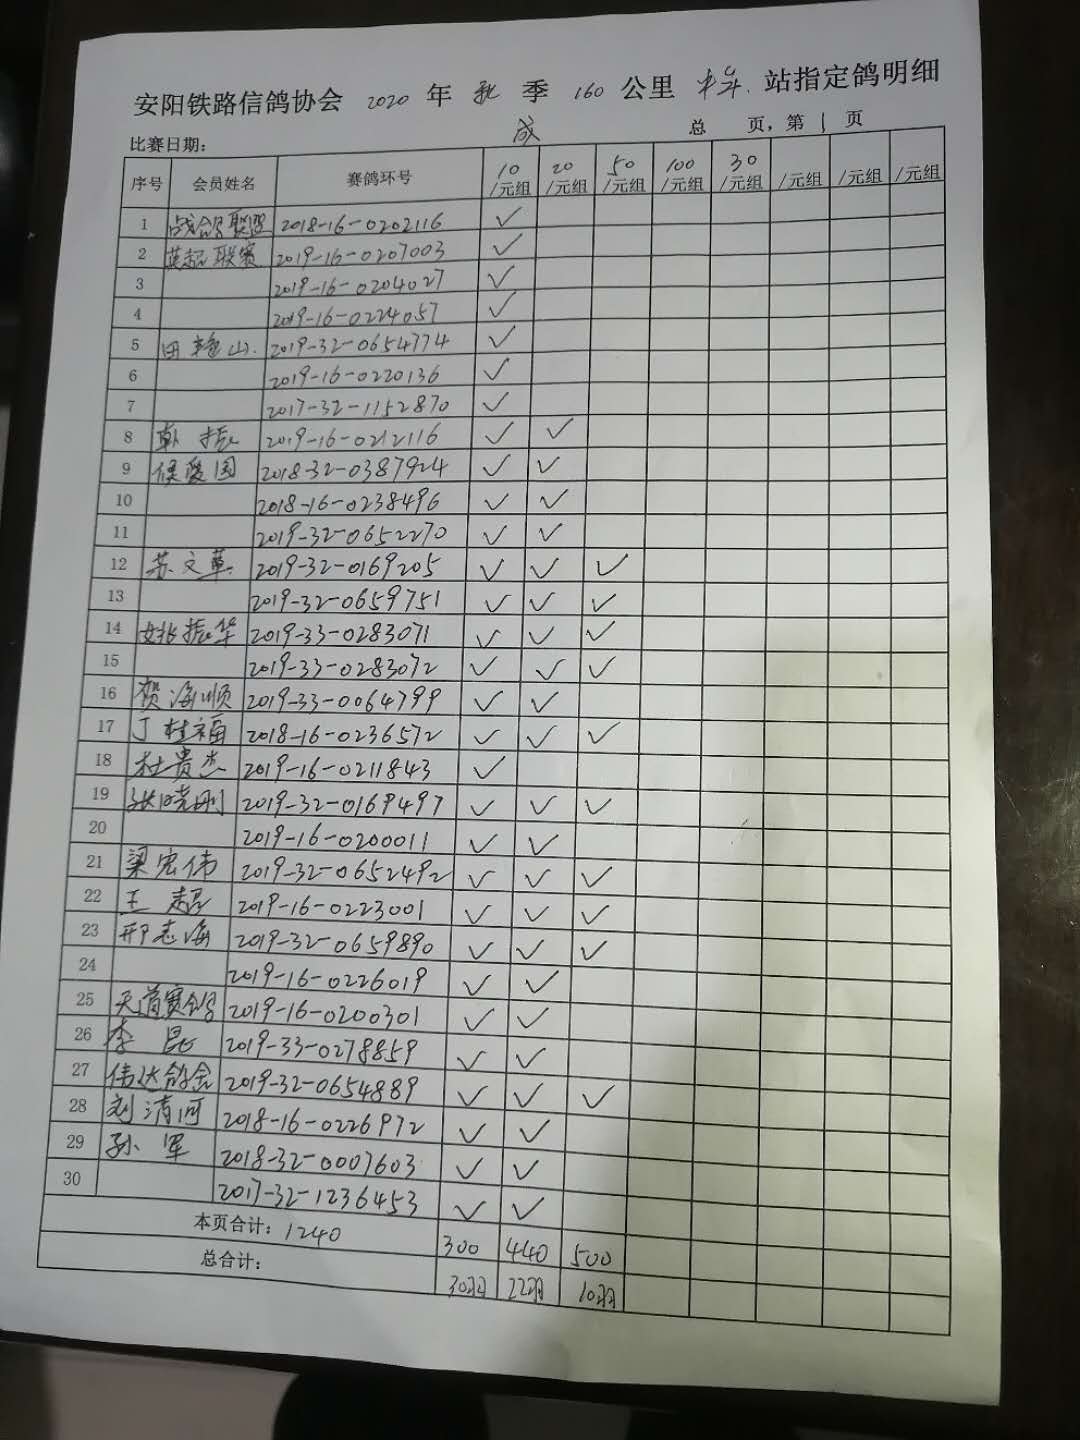 安阳铁路信鸽协会 2020 年 秋 季 160 公里 站指定鸽明细
成
比赛日期: 总 页,第 1 页
序号 会员姓名 赛鸽环号 10/元组 20/元组 50/元组 100/元组 30/元组 /元组 /元组 /元组
1 战鸽联盟 2018-16-0202116 ✓
2 英超联赛 2019-16-0207003 ✓
3 2019-16-0204027 ✓
4 2019-16-0224057 ✓
5 田 山. 2019-32-0654774 ✓
6 2019-16-0220136 ✓
7 2017-32-1152870 ✓
8 韩振 2019-16-0212116 ✓ ✓
9 侯爱国 2018-32-0387924 ✓ ✓
10 2018-16-0238496 ✓ ✓
11 2019-32-0652270 ✓ ✓
12 苏文革. 2019-32-0169205 ✓ ✓ ✓
13 2019-32-0659751 ✓ ✓ ✓
14 姚振华 2019-33-0283071 ✓ ✓ ✓
15 2019-33-0283072 ✓ ✓ ✓
16 贺海顺 2019-33-0064799 ✓ ✓
17 丁桂福 2018-16-0236572 ✓ ✓ ✓
18 杜贵杰 2019-16-0211843 ✓
19 张晓刚 2019-32-0169497 ✓ ✓ ✓
20 2019-16-0200011 ✓ ✓
21 梁宏伟 2019-32-0652492 ✓ ✓ ✓
22 王超 2019-16-0223001 ✓ ✓ ✓
23 邢志海 2019-32-0659890 ✓ ✓ ✓
24 2019-16-0226019 ✓ ✓
25 天道赛鸽 2019-16-0200301 ✓ ✓
26 李昆 2019-33-0278859 ✓ ✓
27 伟达鸽舍 2019-32-0654889 ✓ ✓ ✓
28 刘清河 2018-16-0226972 ✓ ✓
29 孙军 2018-32-0007603 ✓ ✓
30 2017-32-1236453 ✓ ✓
本页合计: 1240 300 440 500
总合计: 30羽 22羽 10羽